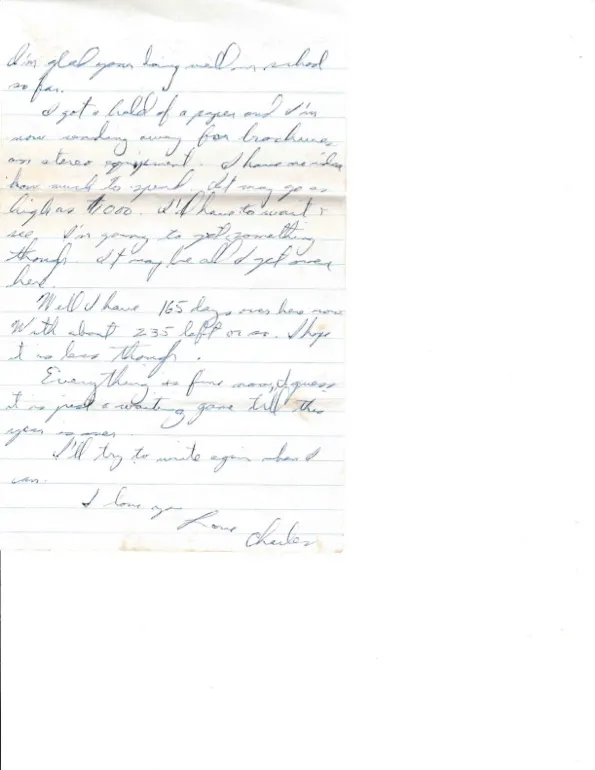 I'm glad your doing well in school
so far.
I got a hold of a paper and I'm
now sending away for brochures
on stereo equipment. I have no idea
how much to spend. It may go as
high as $1000. I'll have to wait &
see. I'm going to get something
though. It may be all I get over
here.
Well I have 165 days over here now
With about 235 left or so. I hope
it is less though.
Everything is fine now, I guess
it is just a waiting game till this
year is over.
I'll try to write again when I
can.
I love you
Love Charles